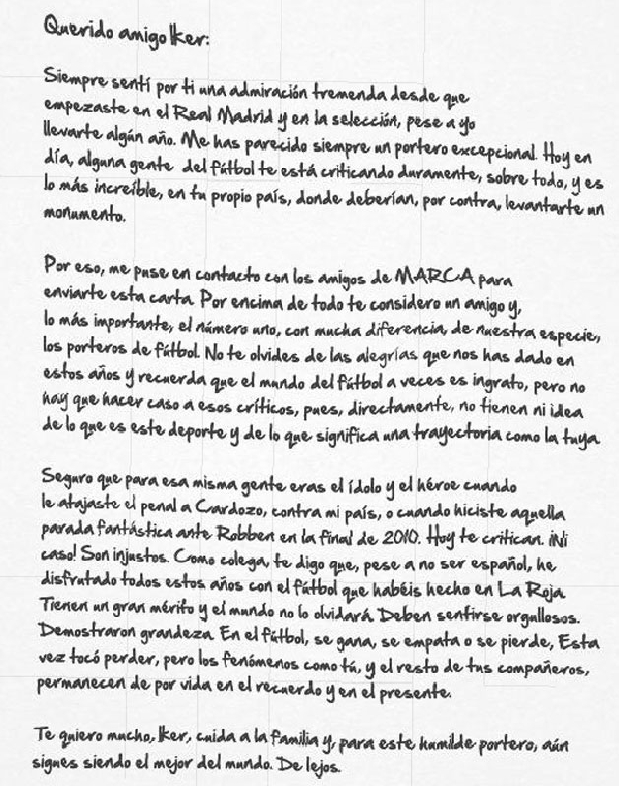 Querido amigo Iker:
Siempre sentí por ti una admiración tremenda desde que
empezaste en el Real Madrid y en la selección, pese a yo
llevarte algún año. Me has parecido siempre un portero excepcional. Hoy en
día, alguna gente del fútbol te está criticando duramente, sobre todo, y es
lo más increíble, en tu propio país, donde deberían, por contra, levantarte un
monumento.
Por eso, me puse en contacto con los amigos de MARCA para
enviarte esta carta. Por encima de todo te considero un amigo y,
lo más importante, el número uno, con mucha diferencia, de nuestra especie,
los porteros de fútbol. No te olvides de las alegrías que nos has dado en
estos años y recuerda que el mundo del fútbol a veces es ingrato, pero no
hay que hacer caso a esos críticos, pues, directamente, no tienen ni idea
de lo que es este deporte y de lo que significa una trayectoria como la tuya.
Seguro que para esa misma gente eras el ídolo y el héroe cuando
le atajaste el penal a Cardozo, contra mi país, o cuando hiciste aquella
parada fantástica ante Robben en la final de 2010. Hoy te critican. ¡Ni
caso! Son injustos. Como colega, te digo que, pese a no ser español, he
disfrutado todos estos años con el fútbol que habéis hecho en La Roja.
Tienen un gran mérito y el mundo no lo olvidará. Deben sentirse orgullosos.
Demostraron grandeza. En el fútbol, se gana, se empata o se pierde, Esta
vez tocó perder, pero los fenómenos como tú, y el resto de tus compañeros,
permanecen de por vida en el recuerdo y en el presente.
Te quiero mucho, Iker, cuida a la familia y, para este humilde portero, aún
sigues siendo el mejor del mundo. De lejos.